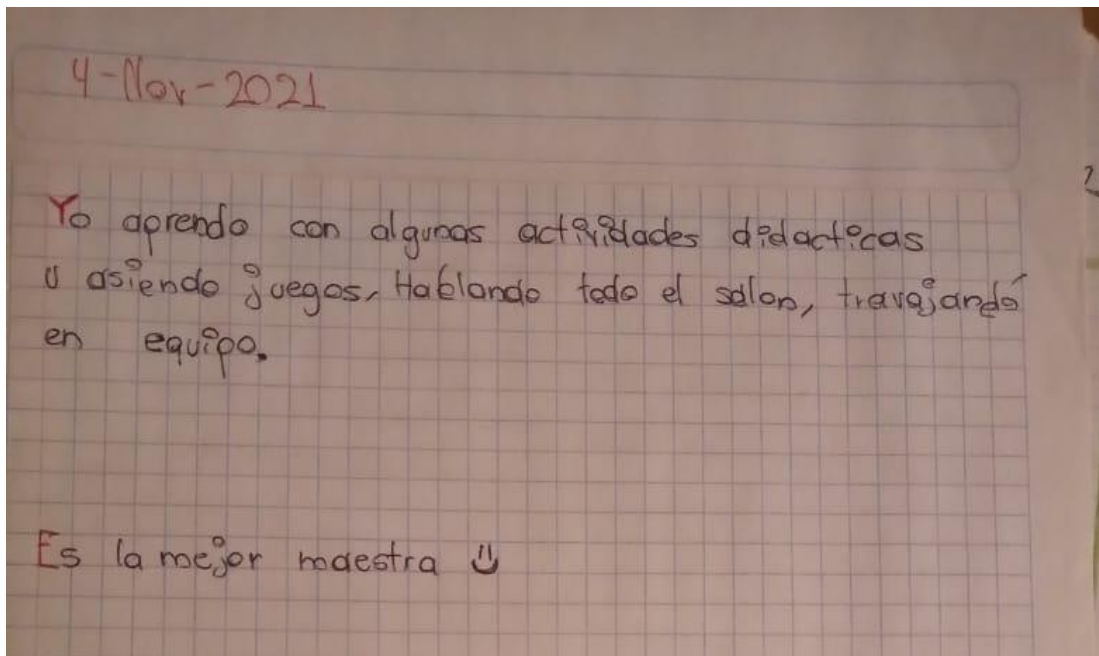 4-Nov-2021
Yo aprendo con algunas actividades didacticas
u asiendo juegos, Hablando todo el salon, travajando
en equipo.
Es la mejor maestra